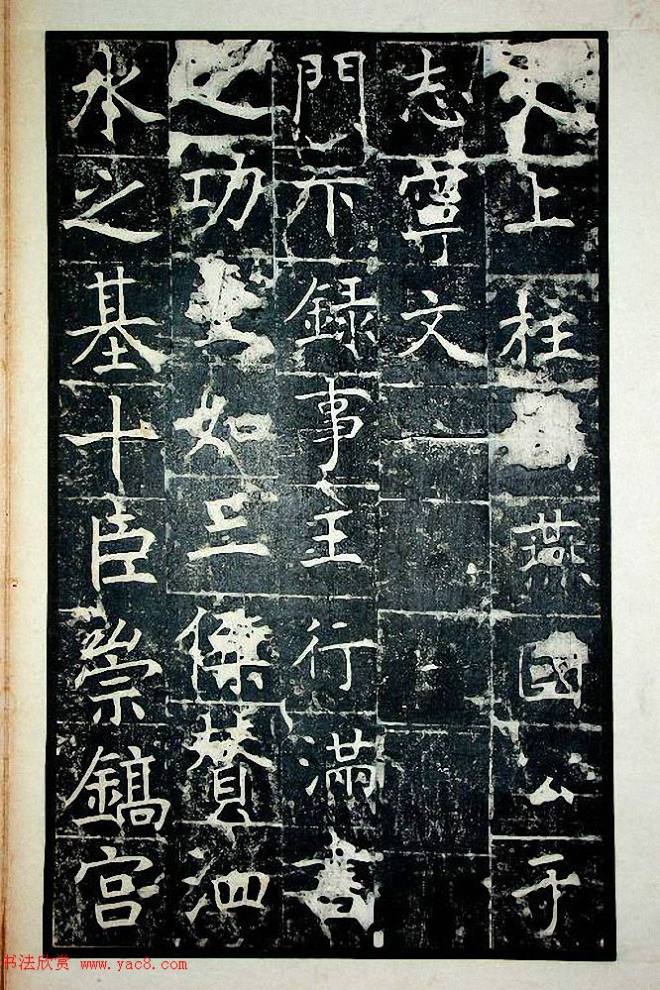 上柱燕國公于
志寧文
門下錄事王行滿書
之功如三傑贊泗
水之基十臣崇鎬宮
书法欣赏 www.yac8.com